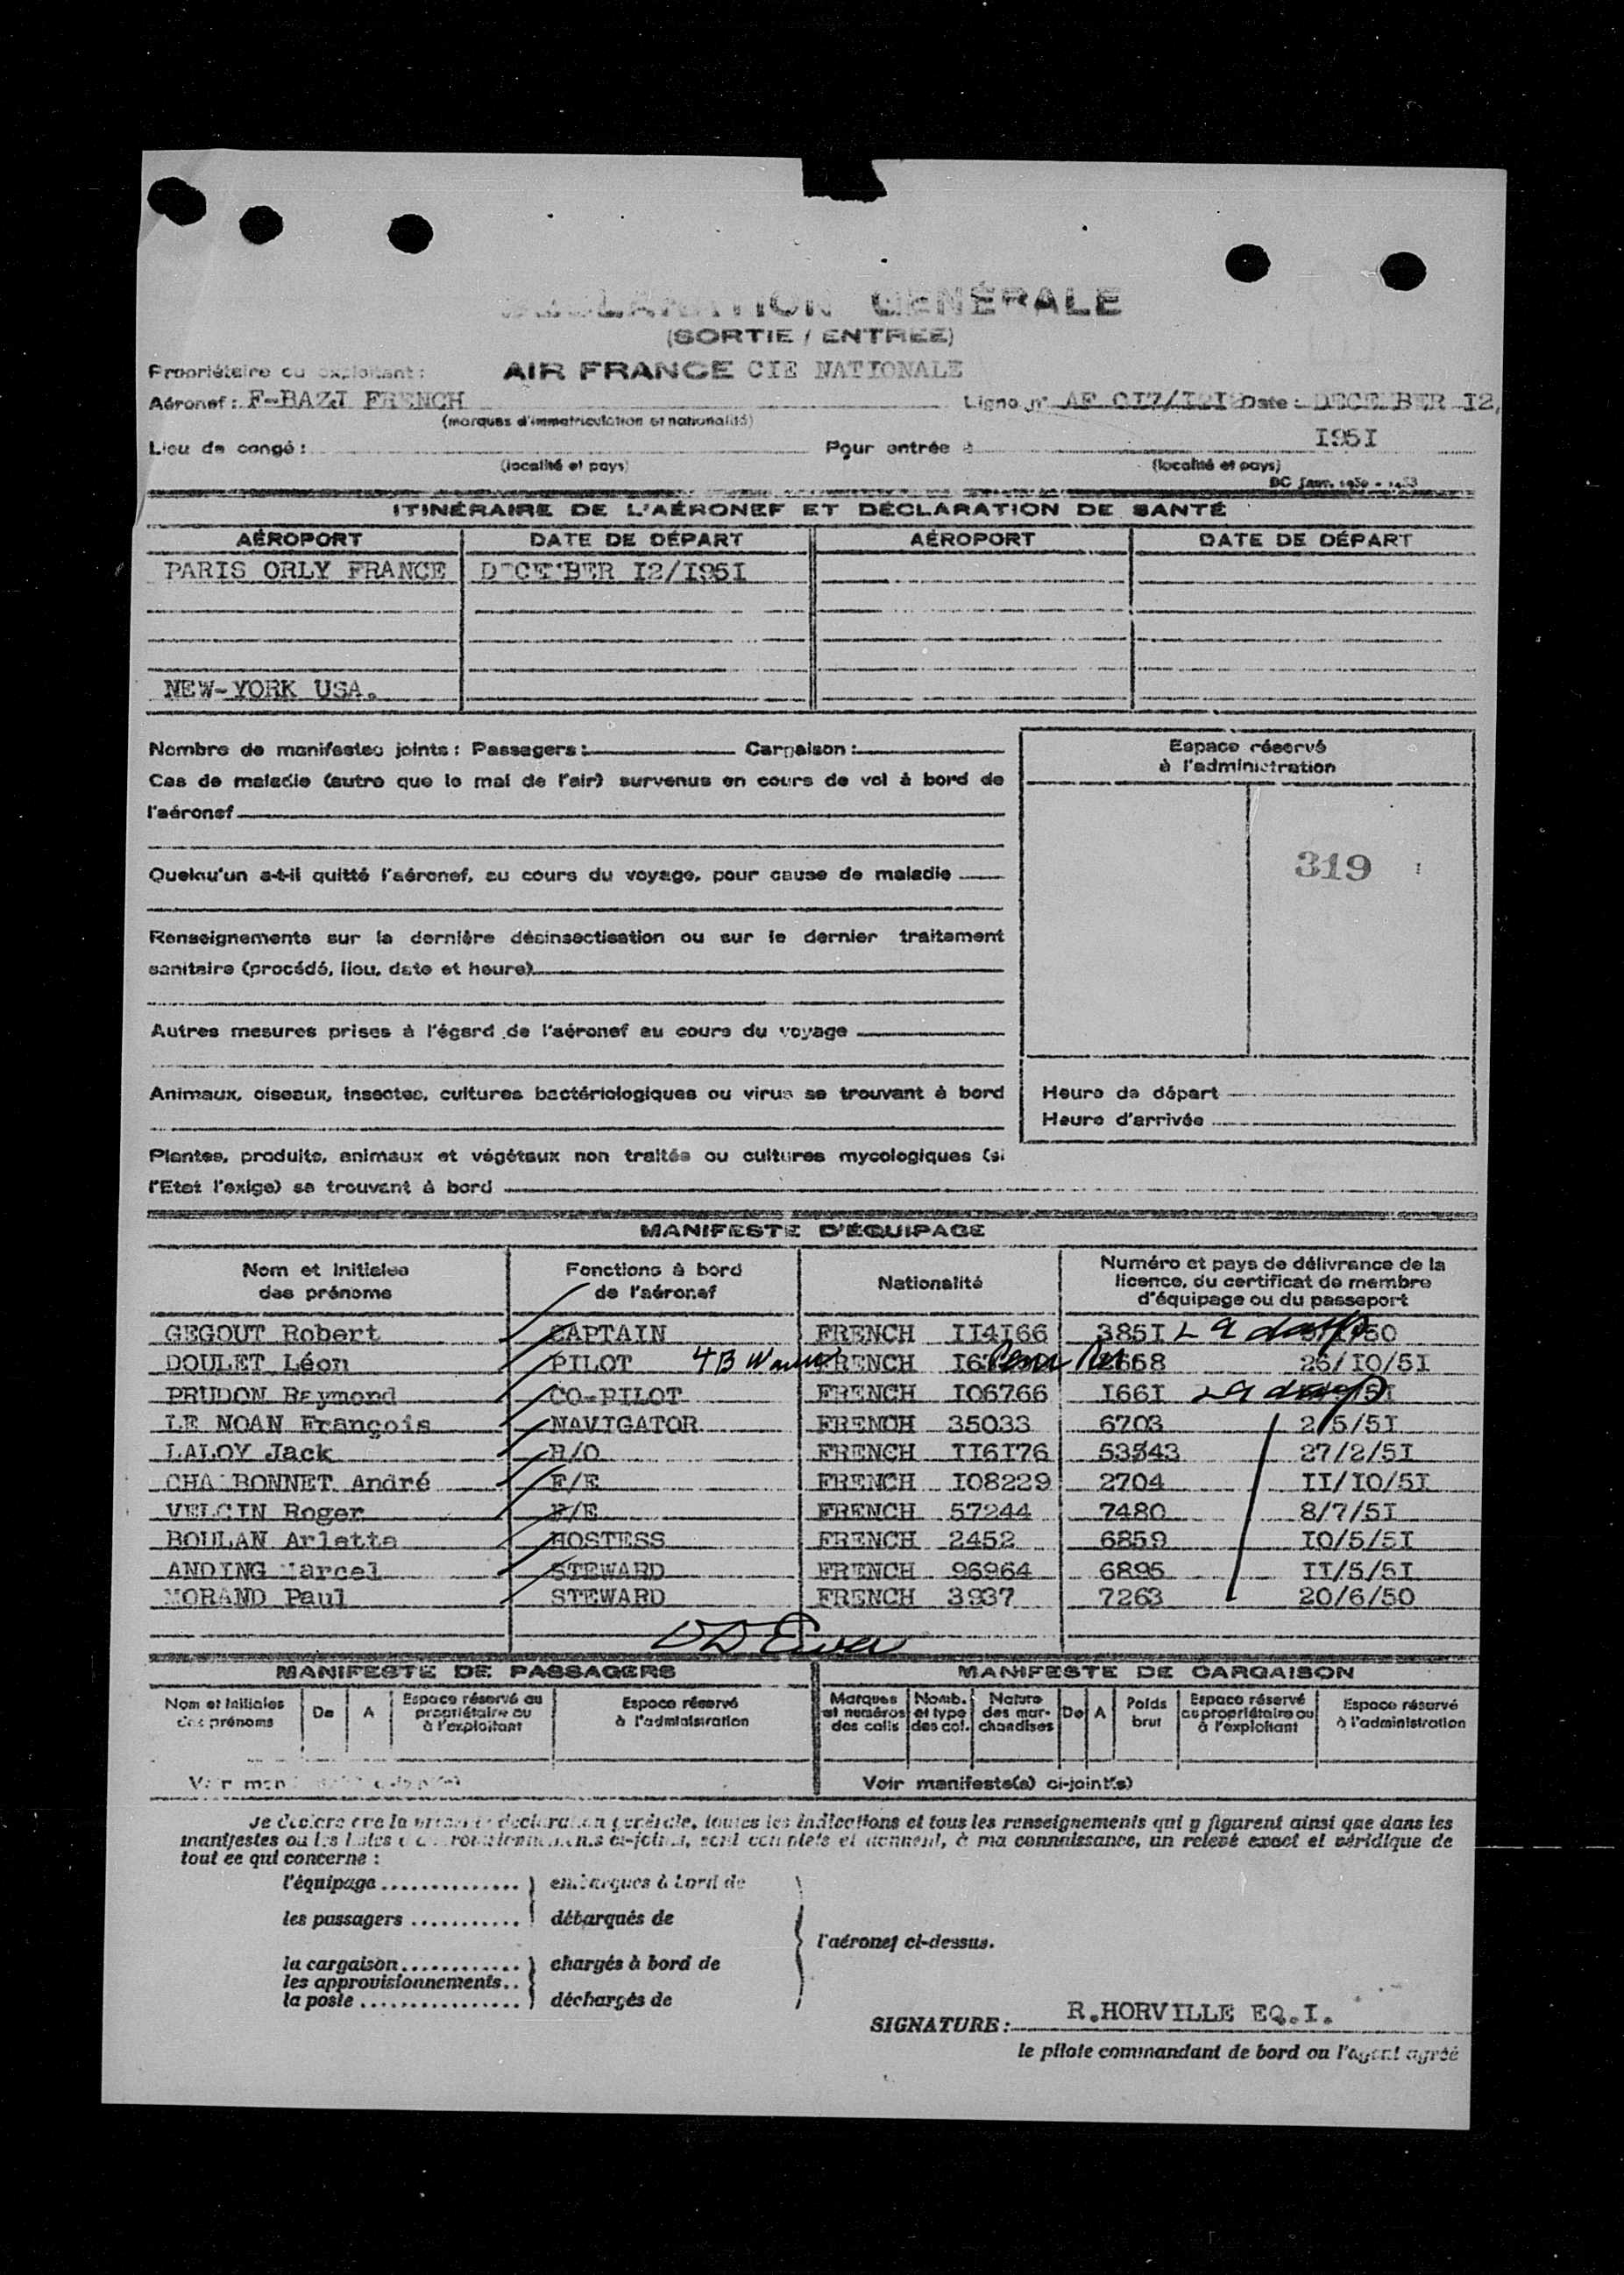 GÉNÉRALE
(SORTIE / ENTRÉE)
Propriétaire ou exploitant : AIR FRANCE CIE NATIONALE
Aéronef : F-BAZJ FRENCH Ligne n° AF 017/I2I Date : DECEMBER I2,
(marques d'immatriculation et nationalité)
I95I
Lieu de congé : Pour entrée à
(localité et pays) (localité et pays)
ITINÉRAIRE DE L'AÉRONEF ET DÉCLARATION DE SANTÉ
AÉROPORT DATE DE DÉPART AÉROPORT DATE DE DÉPART
PARIS ORLY FRANCE DECEMBER I2/I95I
NEW-YORK USA.
Nombre de manifestes joints : Passagers : Cargaison :
Cas de maladie (autre que le mal de l'air) survenus en cours de vol à bord de
l'aéronef
Quelqu'un a-t-il quitté l'aéronef, au cours du voyage, pour cause de maladie
Renseignements sur la dernière désinsectisation ou sur le dernier traitement
sanitaire (procédé, lieu, date et heure)
Autres mesures prises à l'égard de l'aéronef au cours du voyage
Animaux, oiseaux, insectes, cultures bactériologiques ou virus se trouvant à bord
Plantes, produits, animaux et végétaux non traités ou cultures mycologiques (si
l'Etat l'exige) se trouvant à bord
Espace réservé
à l'administration
319
Heure de départ
Heure d'arrivée
MANIFESTE D'ÉQUIPAGE
Nom et initiales
des prénoms
Fonctions à bord
de l'aéronef
Nationalité
Numéro et pays de délivrance de la
licence, du certificat de membre
d'équipage ou du passeport
GEGOUT Robert CAPTAIN FRENCH II4I66 385I 29 days
DOULET Léon PILOT 4B FRENCH 2668 26/IO/5I
PRUDON Raymond CO-PILOT FRENCH IO6766 I66I 29 days
LE NOAN François NAVIGATOR FRENCH 35033 6703 2/5/5I
LALOY Jack R/O FRENCH II6I76 53543 27/2/5I
CHARBONNET André F/E FRENCH IO8229 2704 II/IO/5I
VELCIN Roger F/E FRENCH 57244 7480 8/7/5I
BOULAN Arlette HOSTESS FRENCH 2452 6859 IO/5/5I
ANDING Marcel STEWARD FRENCH 96964 6895 II/5/5I
MORAND Paul STEWARD FRENCH 3937 7263 20/6/50
MANIFESTE DE PASSAGERS
Nom et initiales
des prénoms
De A
Espace réservé au
propriétaire ou
à l'exploitant
Espace réservé
à l'administration
MANIFESTE DE CARGAISON
Marques
et numéros
des colis
Nomb.
et type
des col.
Nature
des mar-
chandises
De A
Poids
brut
Espace réservé
au propriétaire ou
à l'exploitant
Espace réservé
à l'administration
Voir manifeste(s) ci-joint(s)
Je déclare que la présente déclaration générale, toutes les indications et tous les renseignements qui y figurent ainsi que dans les
manifestes ou les listes ci-joints, sont complets et donnent, à ma connaissance, un relevé exact et véridique de
tout ce qui concerne :
l'équipage embarqués à bord de
les passagers débarqués de
l'aéronef ci-dessus.
la cargaison chargés à bord de
les approvisionnements
la poste déchargés de
SIGNATURE : R.HORVILLE EQ.I.
le pilote commandant de bord ou l'agent agréé